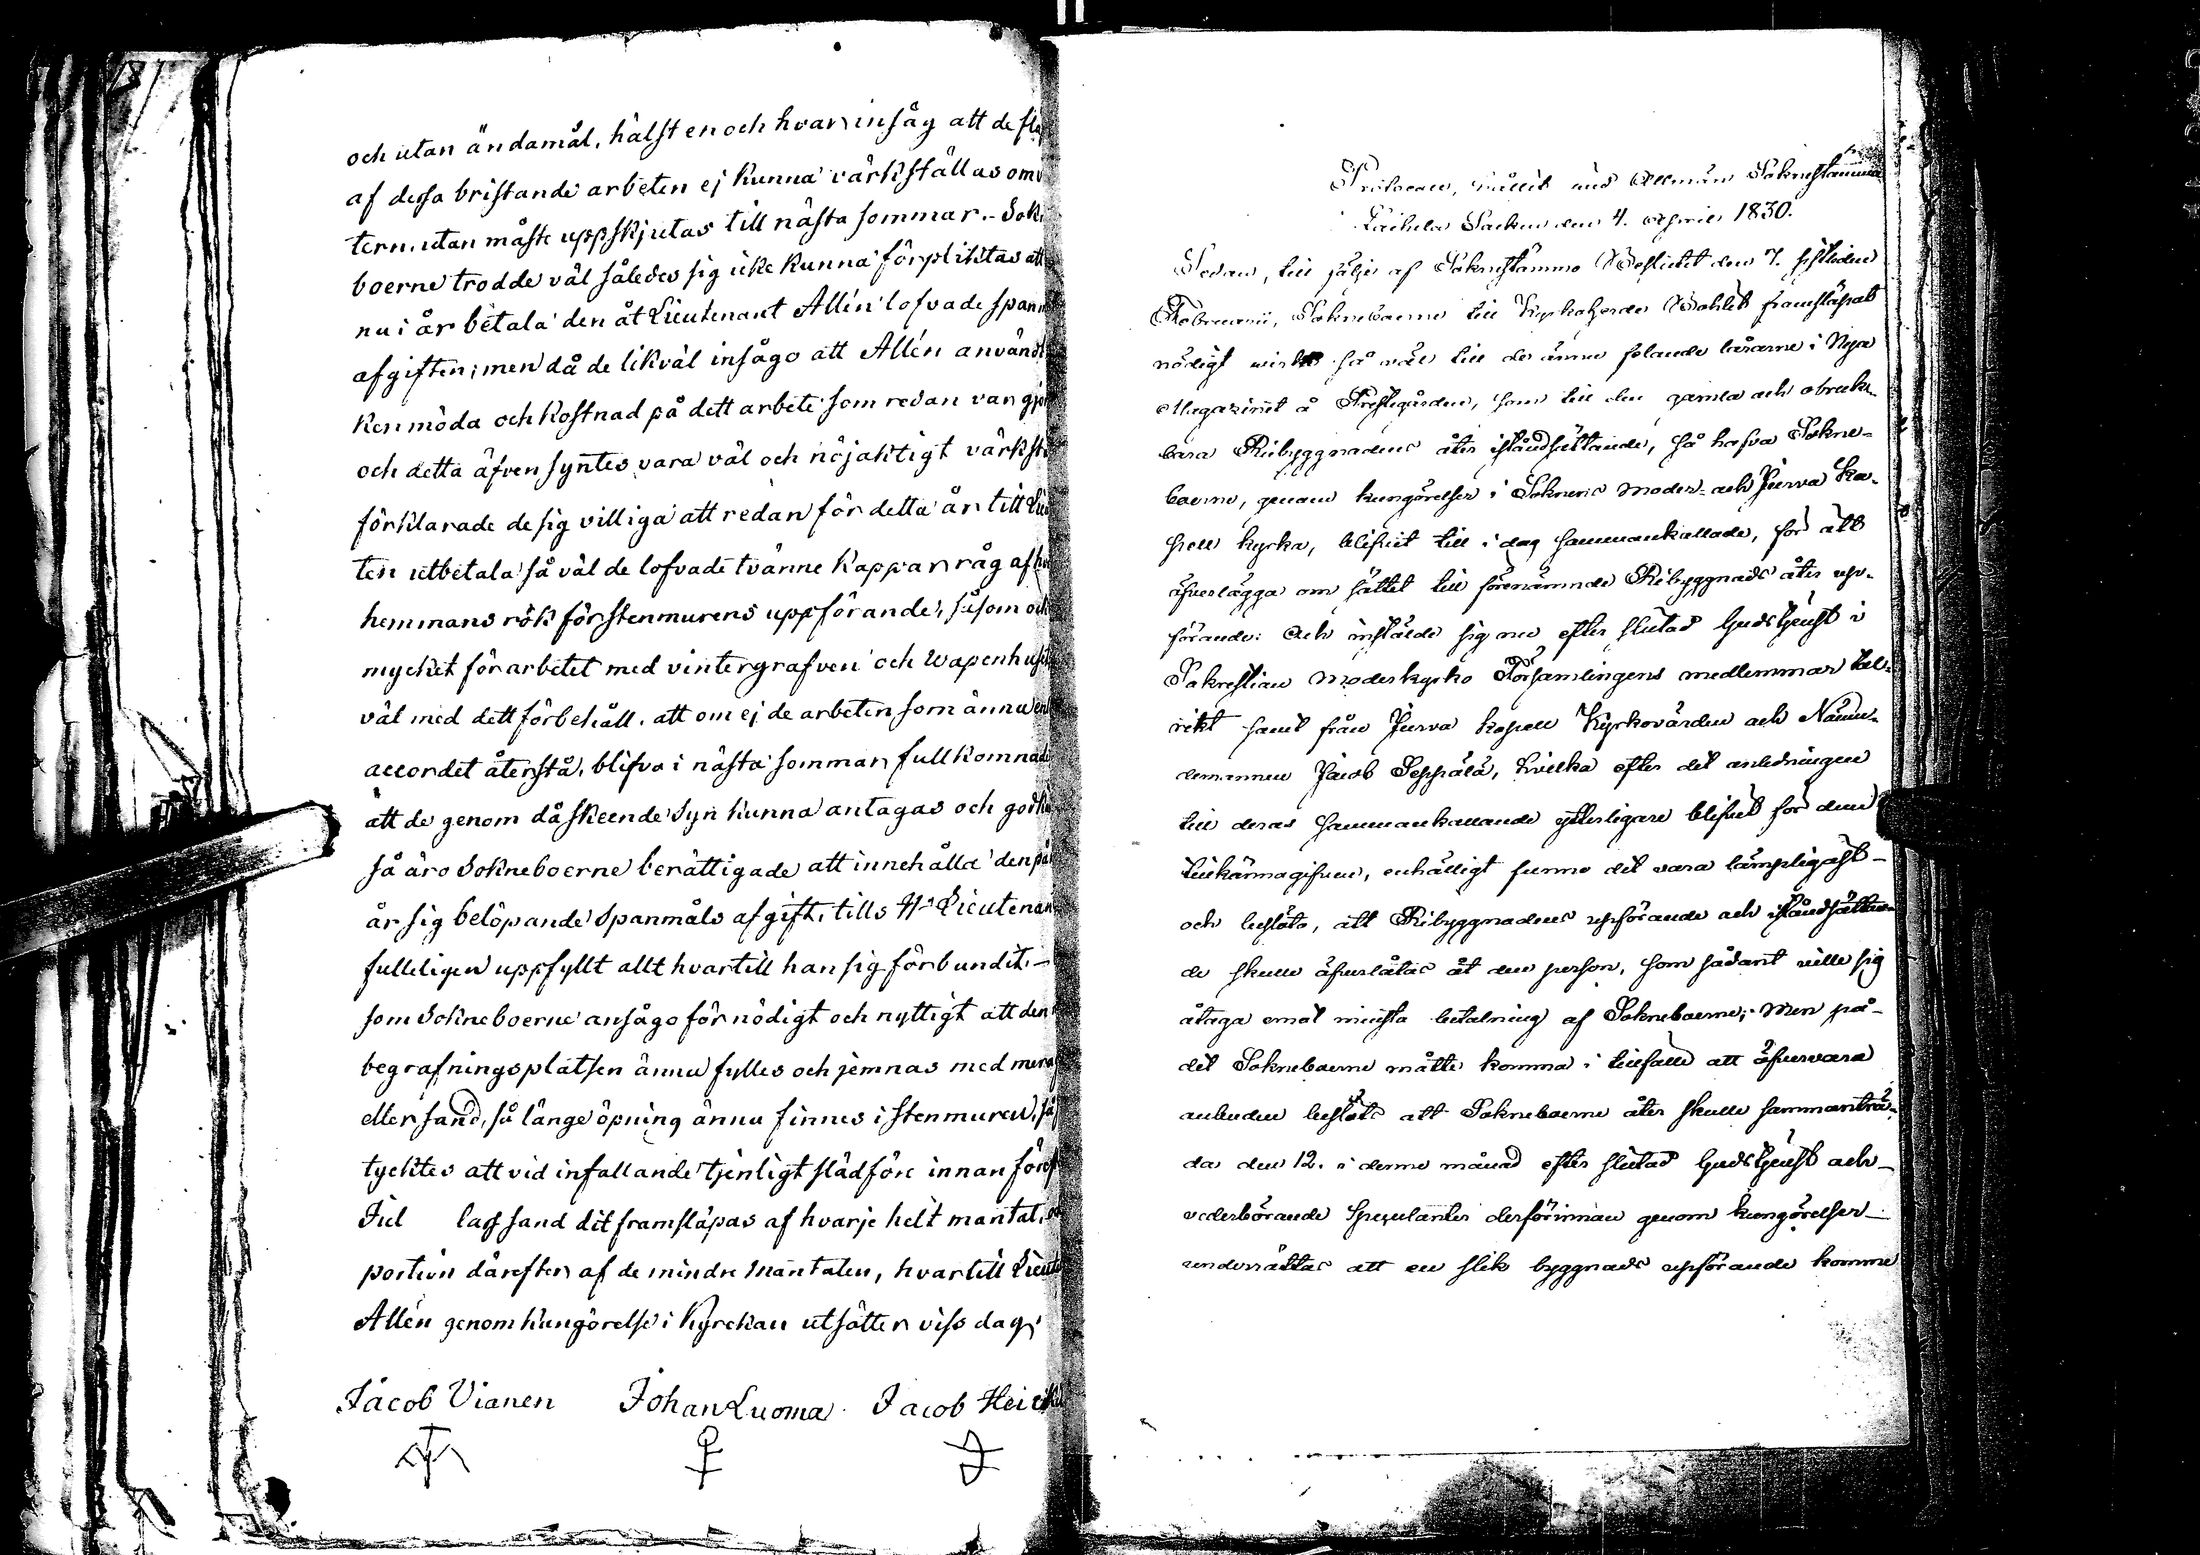 och utan ändamål, hälst en och hvar insåg att de fle
af dessa bristande arbeten ej kunna värkställas om v
tern, utan måste uppskjutas till nästa sommar. - Sok
boerne trodde väl således sig icke kunna förpliktas att
nu i år betala den åt Lieutenant Allén lofvade spann
afgiften; men då de likväl insågo att Allén användt
ken möda och kostnad på dett arbete som redan var gjor
och detta äfven syntes vara väl och nöjaktigt värkst
förklarade de sig villiga att redan för detta år till Lieu
ten utbetala så väl de lofvade tvänne Kappar råg af hv
hemmans rök för stenmurens uppförande, såsom och
mycket för arbetet med vintergrafven och Wapenhuset
väl med dett förbehåll, att om ej de arbeten som ännu en
accordet återstå, blifva i nästa sommar fullkomnade
att de genom då skeende Syn kunna antagas och godkä
så äro Sokneboerne berättigade att innehålla den på
år sig belöpande Spanmåls afgift, tills Hr Lieutenan
fulleligen uppfyllt allt hvartill han sig förbundit. -
som Sokneboerne ansågo för nödigt och nyttigt att den
begrafningsplatsen ännu fylles och jemnas med mera
eller sand, så länge öpning ännu finnes i Stenmuren, så
tycktes att vid infallande tjenligt slädföre innan först
Jul lass sand dit framsläpas af hvarje helt mantal,
portion därefter af de mindre Mantalen, hvartill Lieute
Allén genom kungörelse i Kyrckan utsätter viss dag,
Jacob Vianen Johan Luoma Jacob Heickil
Protocoll, hållit vid Allmän Soknestämma
Laihela Socken den 4. April 1830.
Sedan, till följe af Soknestämmo Beslutet den 7. sistleden
Februarii, Sokneboerne till Kyrkoherde Bohlet framsläpat
nödigt virke så väl till de ännu felande lårarne i Nya
Magazinet å Prestgården, som till den gamla och obruk-
bara Ribyggnadens åter iståndsättande, så hafva Sokne-
boerne, genom kungörelser i Soknens Moder- och Jurva Ka-
pell kyrka, blifvit till i dag sammankallade, för att
äfverlägga om sättet till förenämnde Ribyggnads åter upp-
förande: Och inställde sig nu efter slutad Gudstjenst i
Sakrestian Moderkyrko Församlingens medlemmar tal-
rikt samt från Jurva kapell Kyrkovärden och Nämn-
demannen Jacob Seppälä, hvilka efter det anledningen
till deras sammankallande ytterligare blifvit för dem
tillkännagifven, enhälligt funno det vara lämpligast -
och beslöto, att Ribyggnadens uppförande och iståndsättan-
de skulle äfverlåtas åt den person, som sådant ville sig
åtaga emot minsta betalning af Sokneboerne; Men på-
det Sokneboerne måtte komma i tillfälle att äfvervara
anbuden beslöts att Sokneboerne åter skulle sammanträ-
da den 12. i denna månad efter slutad Gudstjenst och -
vederbörande Speculanter derförinnan genom kungörelser -
underrättas att en slik byggnads uppförande komme